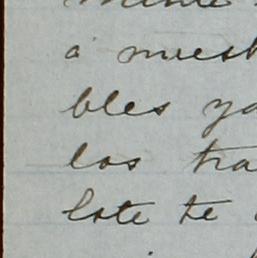 á muest
bles ya
los tra
lote te